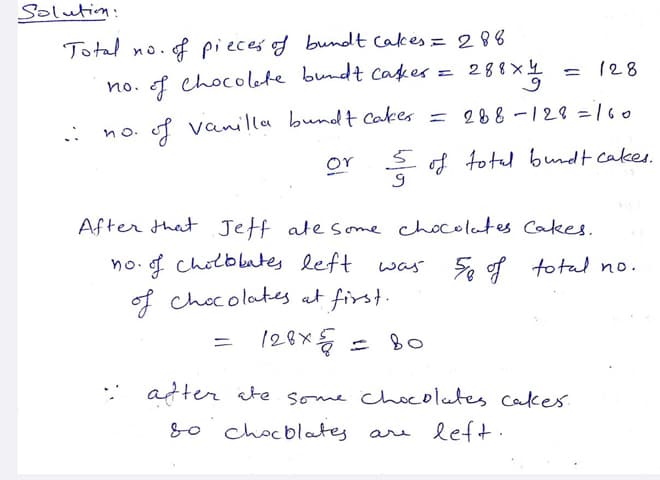 Solution:
Total no. of pieces of bundt cakes = 288
no. of chocolate bundt cakes = 288 × 4/9 = 128
∴ no. of vanilla bundt cakes = 288 - 128 = 160
or 5/9 of total bundt cakes.
After that Jeff ate some chocolates cakes.
no. of chocolates left was 5/8 of total no.
of chocolates at first.
= 128 × 5/8 = 80
∵ after ate some chocolates cakes
80 chocolates are left.